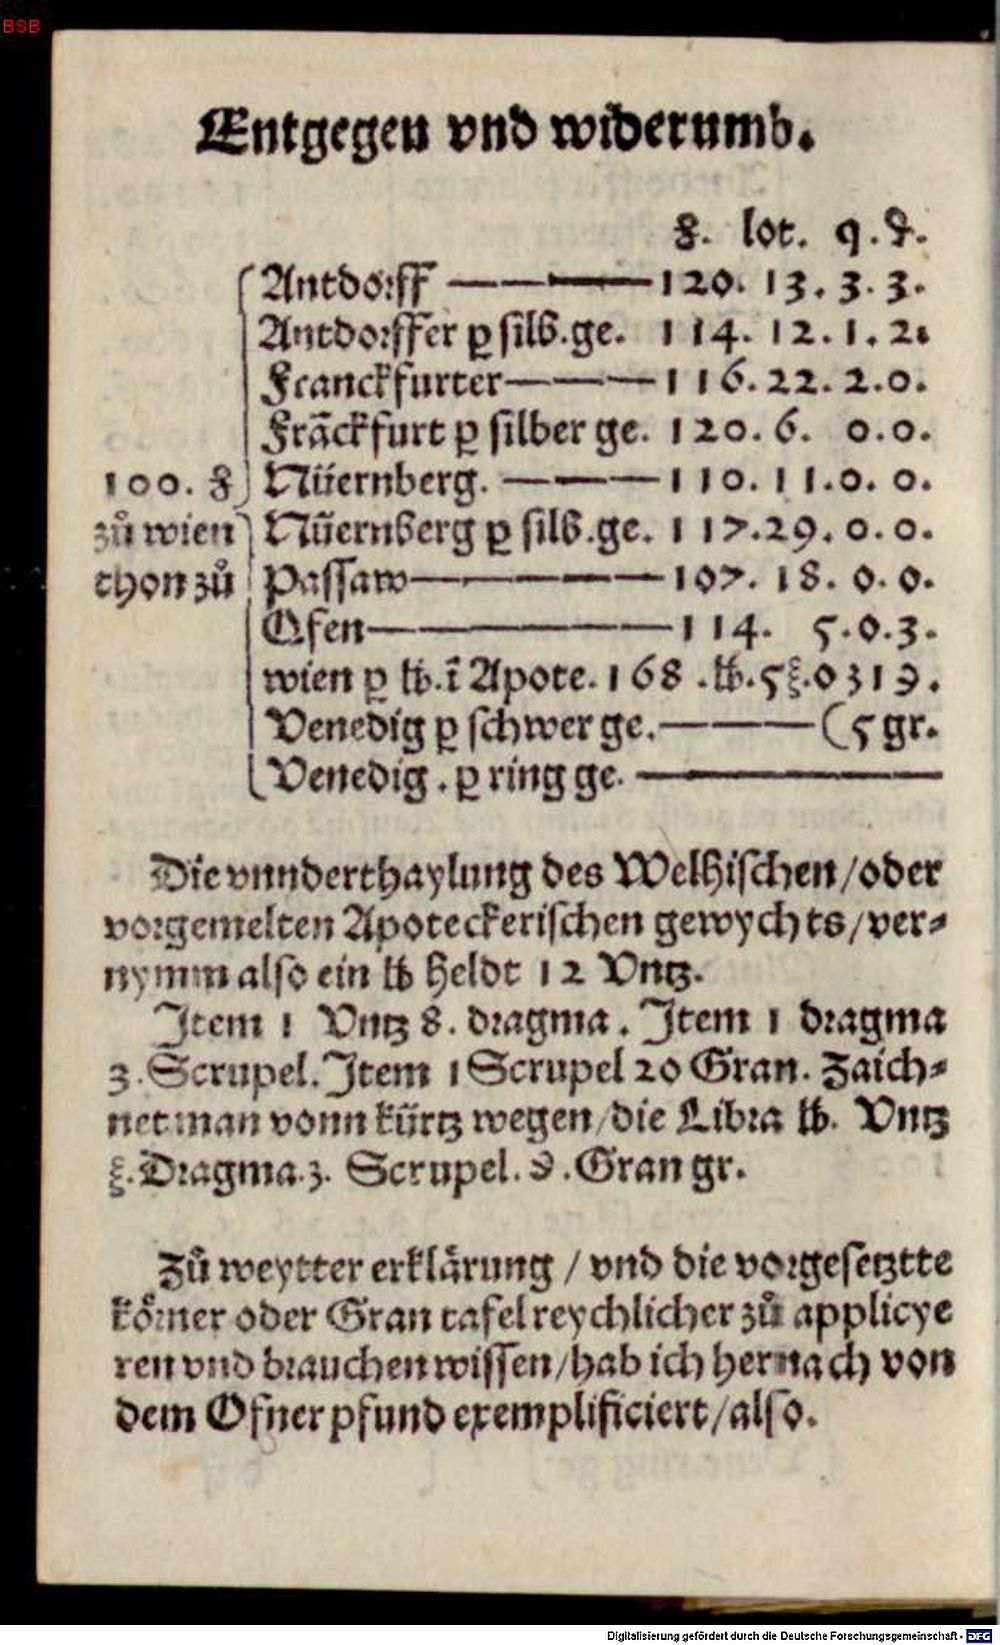 BSB
Entgegen vnd widerumb.
℔. lot. q. ₰.
Antdorff — — — 120. 13. 3. 3.
Antdorffer ꝑ silb.ge. 114. 12. 1. 2.
Franckfurter — — — 116. 22. 2. 0.
Frāckfurt ꝑ silber ge. 120. 6. 0. 0.
100. ℔ Nüernberg. — — — 110. 11. 0. 0.
zů wien Nüernberg ꝑ silb.ge. 117. 29. 0. 0.
thon zů Passaw — — — 107. 18. 0. 0.
Ofen — — — 114. 5. 0. 3.
wien ꝑ ℔.ī Apote. 168 .℔. 5 ℥. 0 ʒ 1 ℈.
Venedig ꝑ schwer ge. — — — (5 gr.
Venedig . ꝑ ring ge. — — —
Die vnnderthaylung des Welhischen/oder
vorgemelten Apoteckerischen gewychts/ver⸗
nymm also ein ℔ heldt 12 Vntz.
Item 1 Vntz 8. dragma. Item 1 dragma
3. Scrupel. Item 1 Scrupel 20 Gran. Zaich⸗
net man vonn kürtz wegen/die Libra ℔. Vntz
℥. Dragma. ʒ. Scrupel. ℈. Gran gr.
Zů weytter erklärung / vnd die vorgesetztte
körner oder Gran tafel reychlicher zů applicye
ren vnd brauchen wissen/hab ich hernach von
dem Ofner pfund exemplificiert/also.
Digitalisierung gefördert durch die Deutsche Forschungsgemeinschaft - DFG